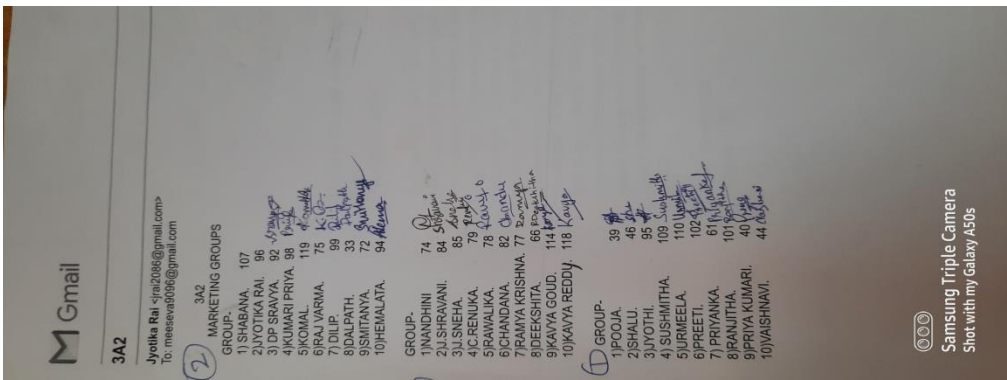 M Gmail
3A2
Jyotika Rai <jrai2086@gmail.com>
To: meeseva9096@gmail.com
3A2
2 MARKETING GROUPS
GROUP-
1) SHABANA. 107
2)JYOTIKA RAI. 96
3) DP SRAVYA. 92
4)KUMARI PRIYA. 98
5)KOMAL. 119
6)RAJ VARMA. 75
7) DILIP. 99
8)DALPATH. 33
9)SMITANYA. 72
10)HEMALATA. 94
GROUP-
1)NANDHINI 74
2)J.SHRAVANI. 84 Shravani
3)J.SNEHA. 85 Sneha
4)C.RENUKA. 79
5)RAWALIKA. 78
6)CHANDANA. 82
7)RAMYA KRISHNA. 77 Ramya
8)DEEKSHITA. 66 Deekshitha
9)KAVYA GOUD. 114
10)KAVYA REDDY. 118 Kavya
1 GROUP-
1)POOJA. 39
2)SHALU. 46
3)JYOTHI. 95
4) SUSHMITHA. 109 Sushmitha
5)URMEELA. 110
6)PREETI. 102 Preeti
7) PRIYANKA. 61 Priyanka
8)RANJITHA. 101
9)PRIYA KUMARI. 40
10)VAISHNAVI. 44
Samsung Triple Camera
Shot with my Galaxy A50s